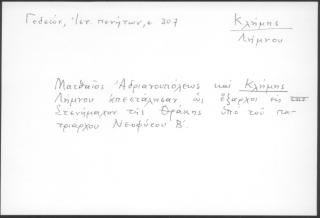 Γεδεών, Ἱστ. πενήτων, σ 207
Κλήμης
Λήμνου
Ματθαῖος Ἀδριανουπόλεως καί Κλήμης
Λήμνου ἀπεστάλησαν ὡς ἔξαρχοι εἰς
Στενήμαχον τῆς Θράκης ὑπό τοῦ πα-
τριάρχου Νεοφύτου Β΄.